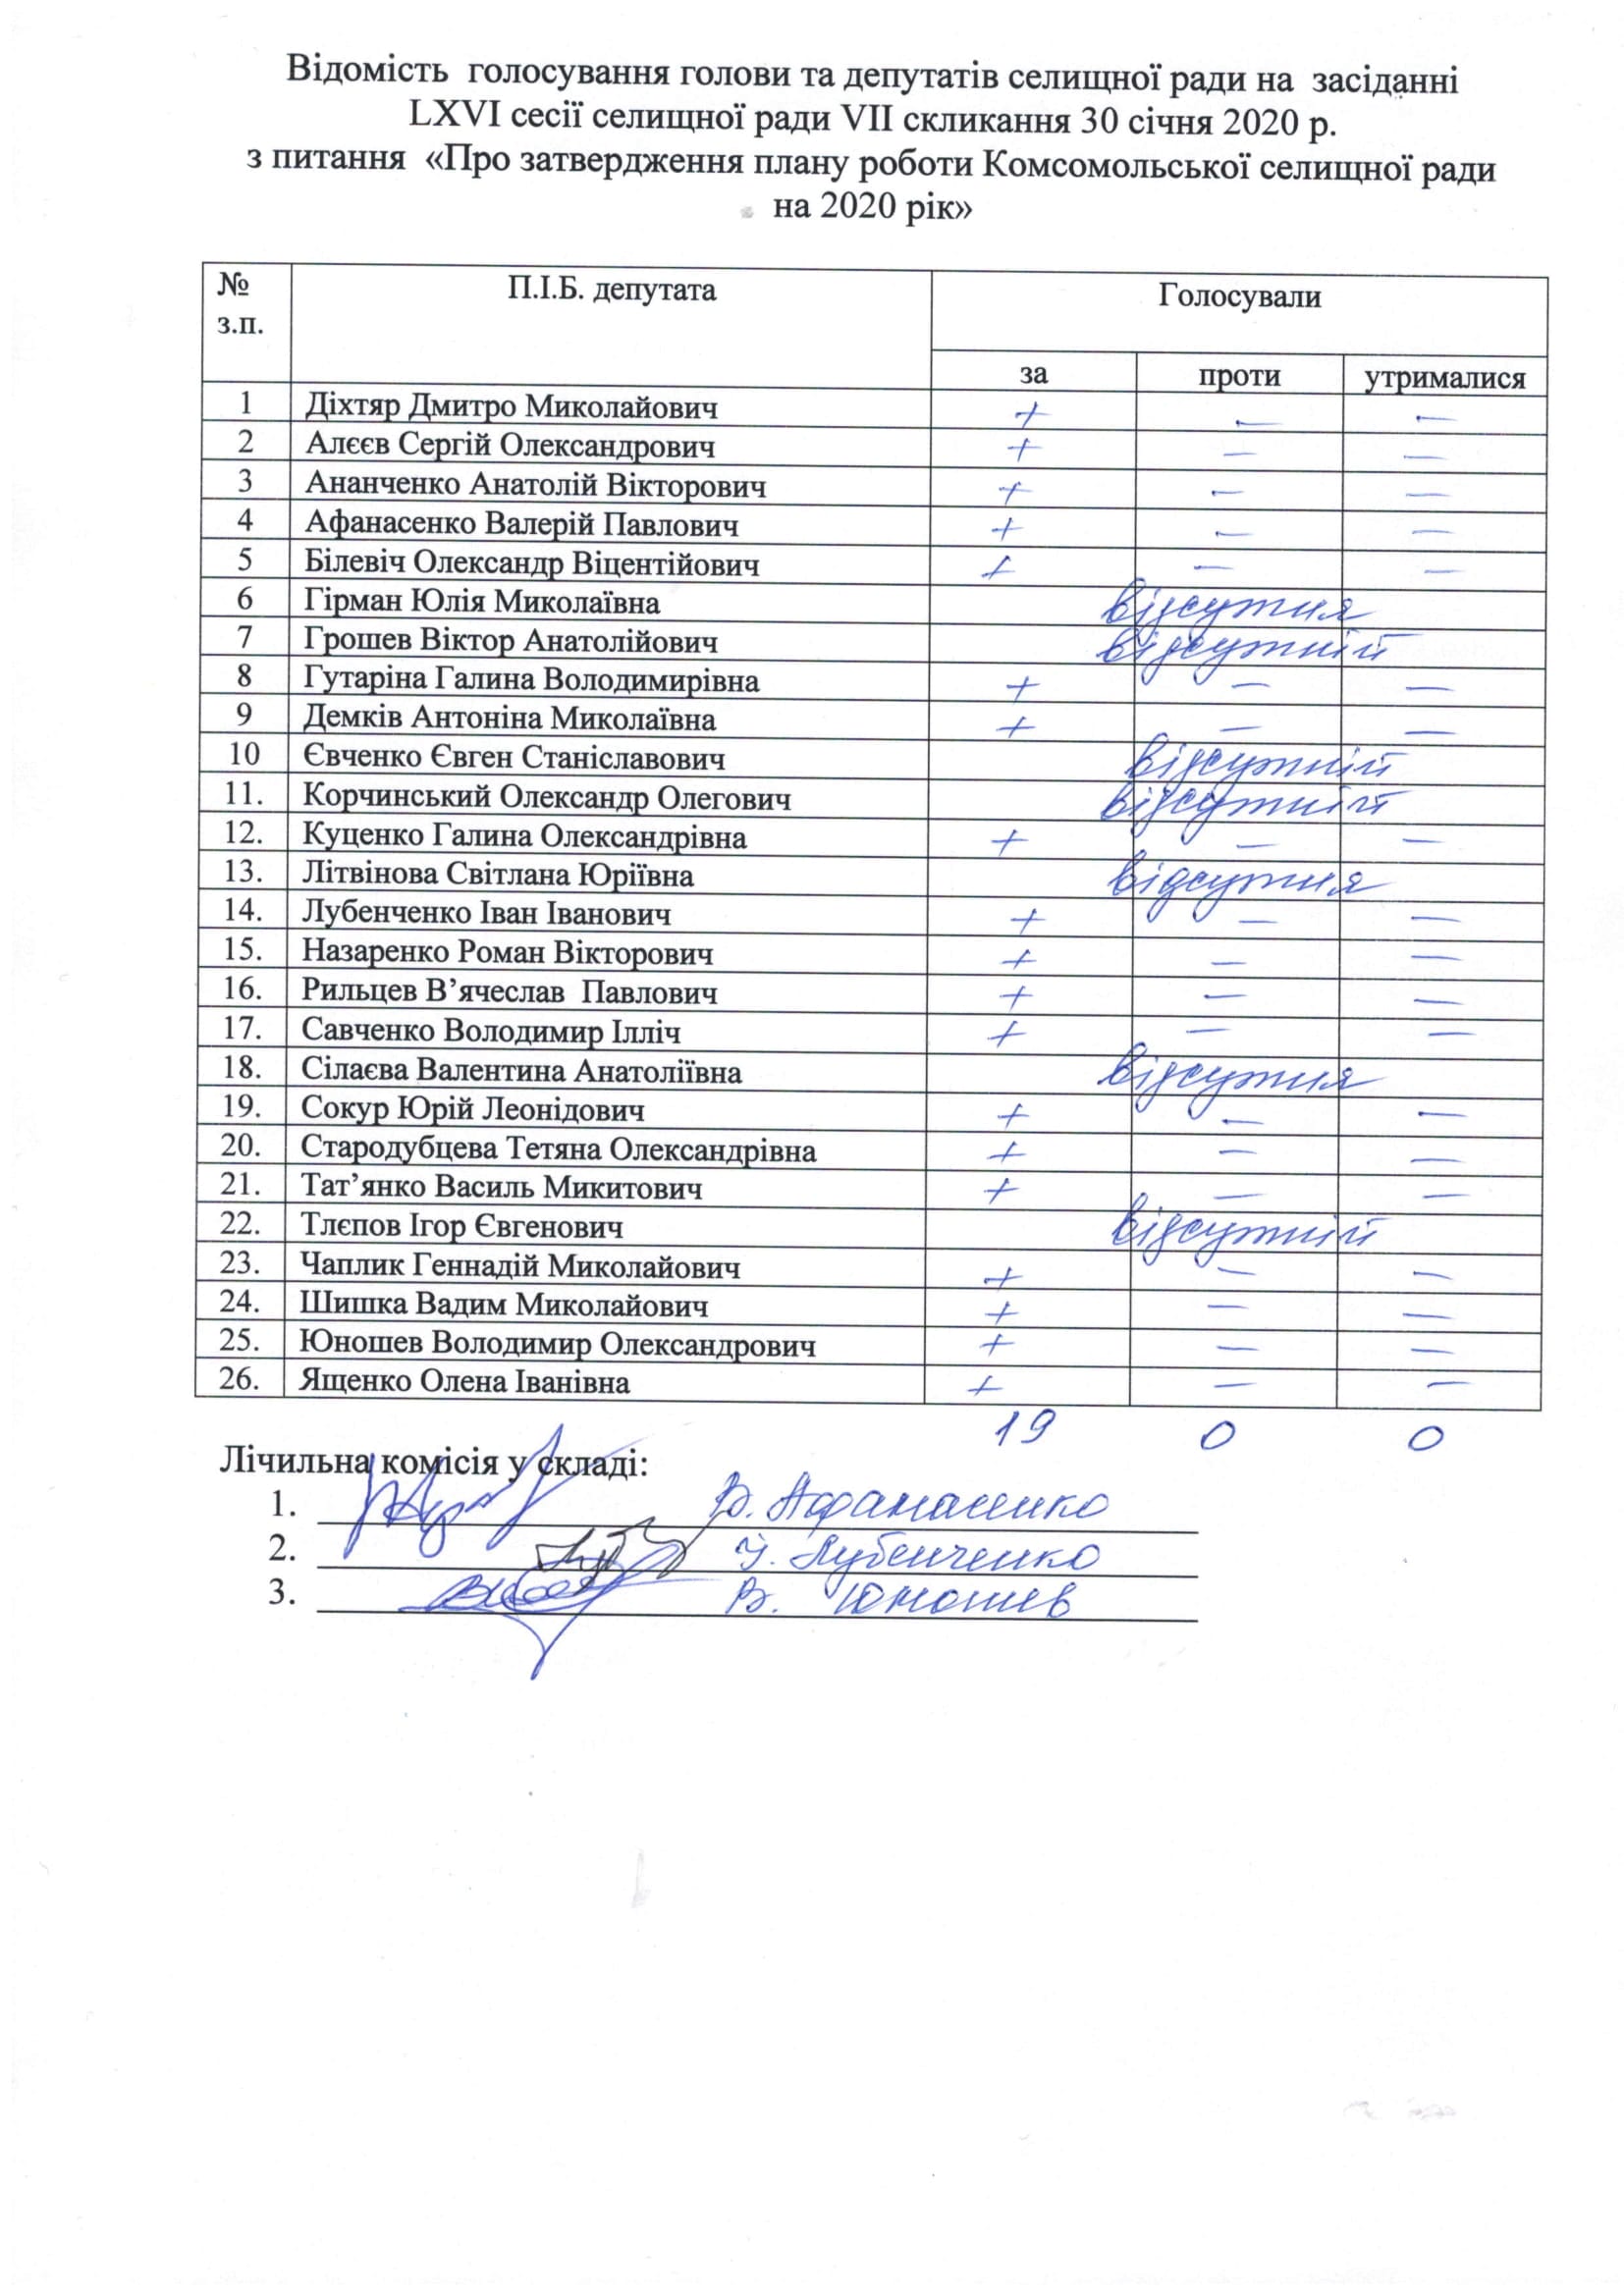 Відомість голосування голови та депутатів селищної ради на засіданні
LXVI сесії селищної ради VII скликання 30 січня 2020 р.
з питання «Про затвердження плану роботи Комсомольської селищної ради
на 2020 рік»
№ з.п. П.І.Б. депутата Голосували
за проти утрималися
1 Діхтяр Дмитро Миколайович + — —
2 Алєєв Сергій Олександрович + — —
3 Ананченко Анатолій Вікторович + — —
4 Афанасенко Валерій Павлович + — —
5 Білевіч Олександр Віцентійович + — —
6 Гірман Юлія Миколаївна відсутня
7 Грошев Віктор Анатолійович відсутній
8 Гутаріна Галина Володимирівна + — —
9 Демків Антоніна Миколаївна + — —
10 Євченко Євген Станіславович відсутній
11. Корчинський Олександр Олегович відсутній
12. Куценко Галина Олександрівна + — —
13. Літвінова Світлана Юріївна відсутня
14. Лубенченко Іван Іванович + — —
15. Назаренко Роман Вікторович + — —
16. Рильцев В’ячеслав Павлович + — —
17. Савченко Володимир Ілліч + — —
18. Сілаєва Валентина Анатоліївна відсутня
19. Сокур Юрій Леонідович + — —
20. Стародубцева Тетяна Олександрівна + — —
21. Тат’янко Василь Микитович + — —
22. Тлєпов Ігор Євгенович відсутній
23. Чаплик Геннадій Миколайович + — —
24. Шишка Вадим Миколайович + — —
25. Юношев Володимир Олександрович + — —
26. Ященко Олена Іванівна + — —
19 0 0
Лічильна комісія у складі:
1. В. Афанасенко
2. І. Лубенченко
3. В. Юношев